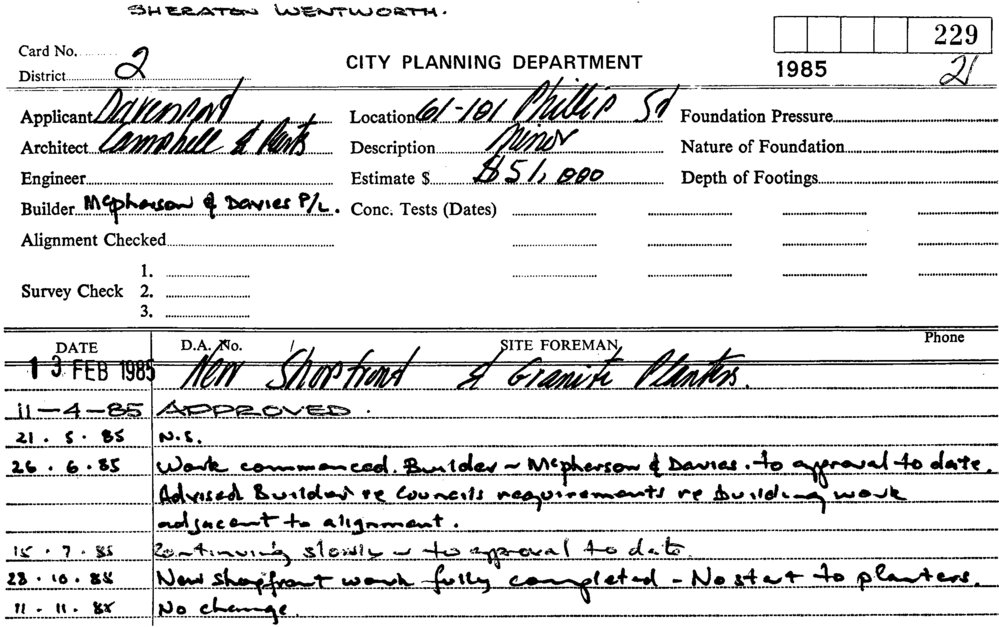 SHERATON WENTWORTH.
229
Card No.
2
CITY PLANNING DEPARTMENT
1985
21
District
Applicant Davenport Location 61-101 Phillip St Foundation Pressure
Architect Campbell & Description Minor Nature of Foundation
Engineer Estimate $ $51,000 Depth of Footings
Builder McPherson & Davies P/L. Conc. Tests (Dates)
Alignment Checked
1.
Survey Check 2.
3.
DATE D.A. No. SITE FOREMAN Phone
13 FEB 1985 New Shopfront & Granite Planters.
11-4-85 APPROVED.
21.5.85 N.S.
26.6.85 Work commenced. Builder ~ McPherson & Davies. to approval to date.
Advised Builder re Councils requirements re building work
adjacent to alignment.
15.7.85 Continuing slowly ~ to approval to date.
28.10.85 New shopfront work fully completed - No start to planters.
11.11.85 No change.